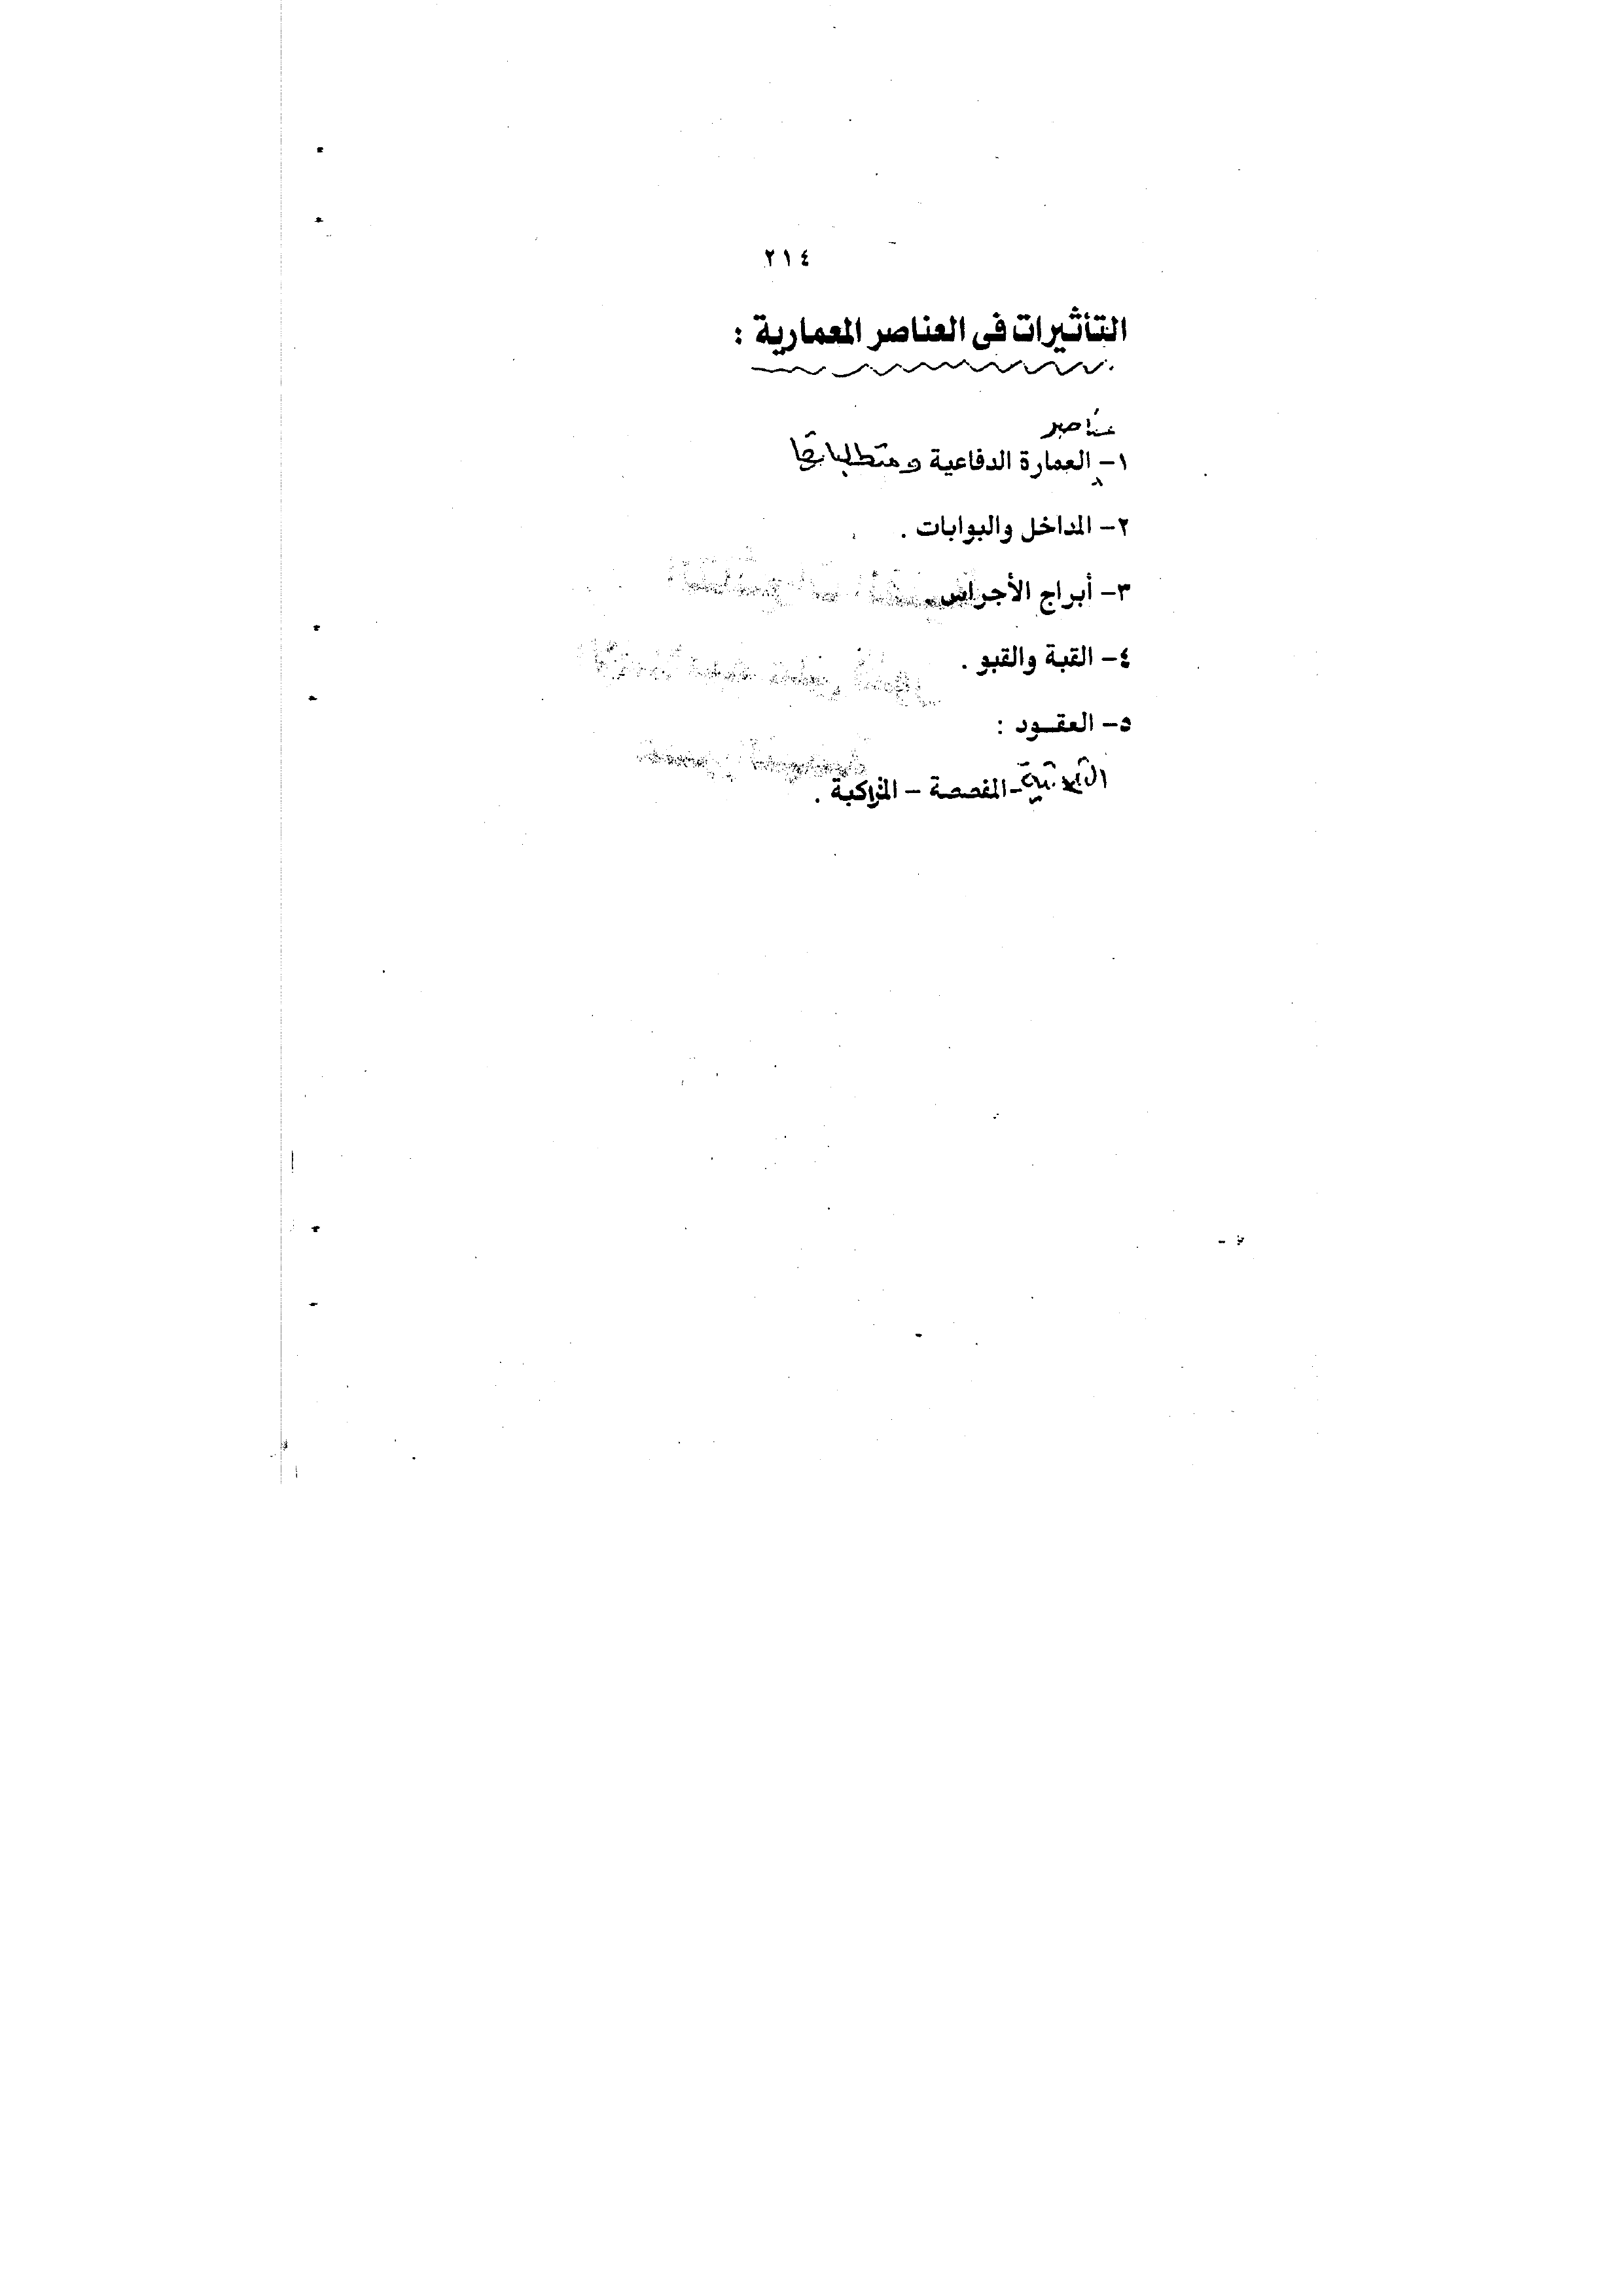 ٢١٤
التأثيرات فى العناصر المعمارية :
عناصر
١- العمارة الدفاعية ومتطلباتها
٢- المداخل والبوابات .
٣- أبراج الأجراس .
٤- القبة والقبو .
٥- العقــود :
-المفصصة - المتراكبة .